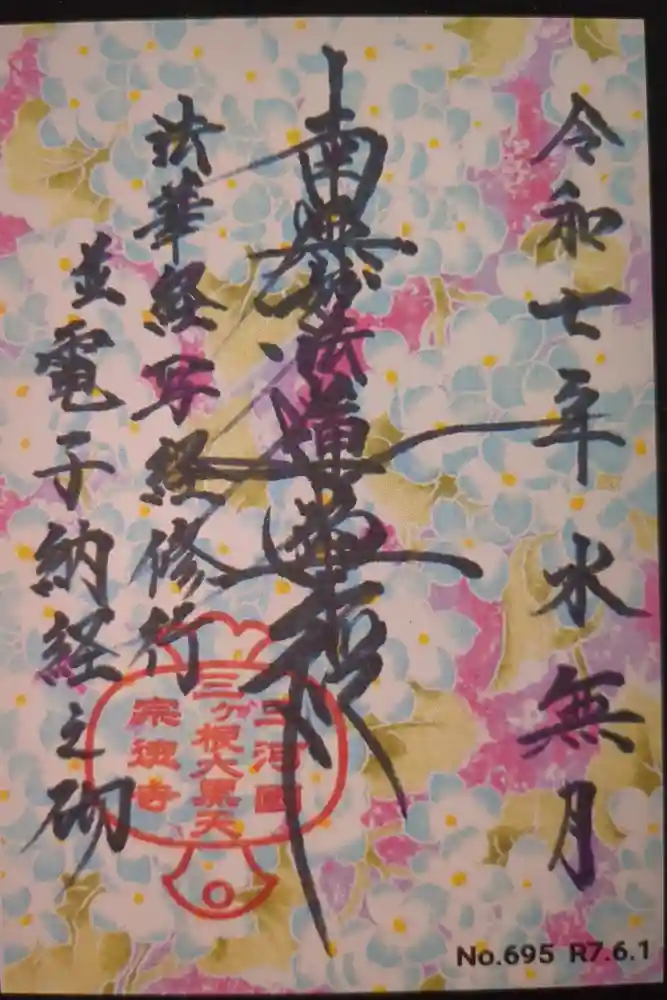 令和七年水無月
南無妙法蓮華経
法華経写経修行
並電子納経之砌
三河國
三ヶ根大黒天
宗徳寺
No.695 R7.6.1